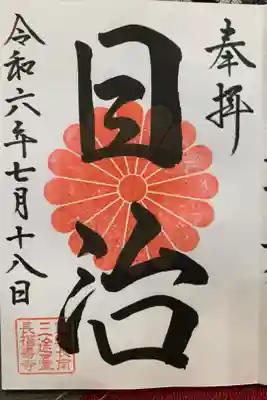 奉拝
目治
令和六年七月十八日
三途臺
長福壽寺